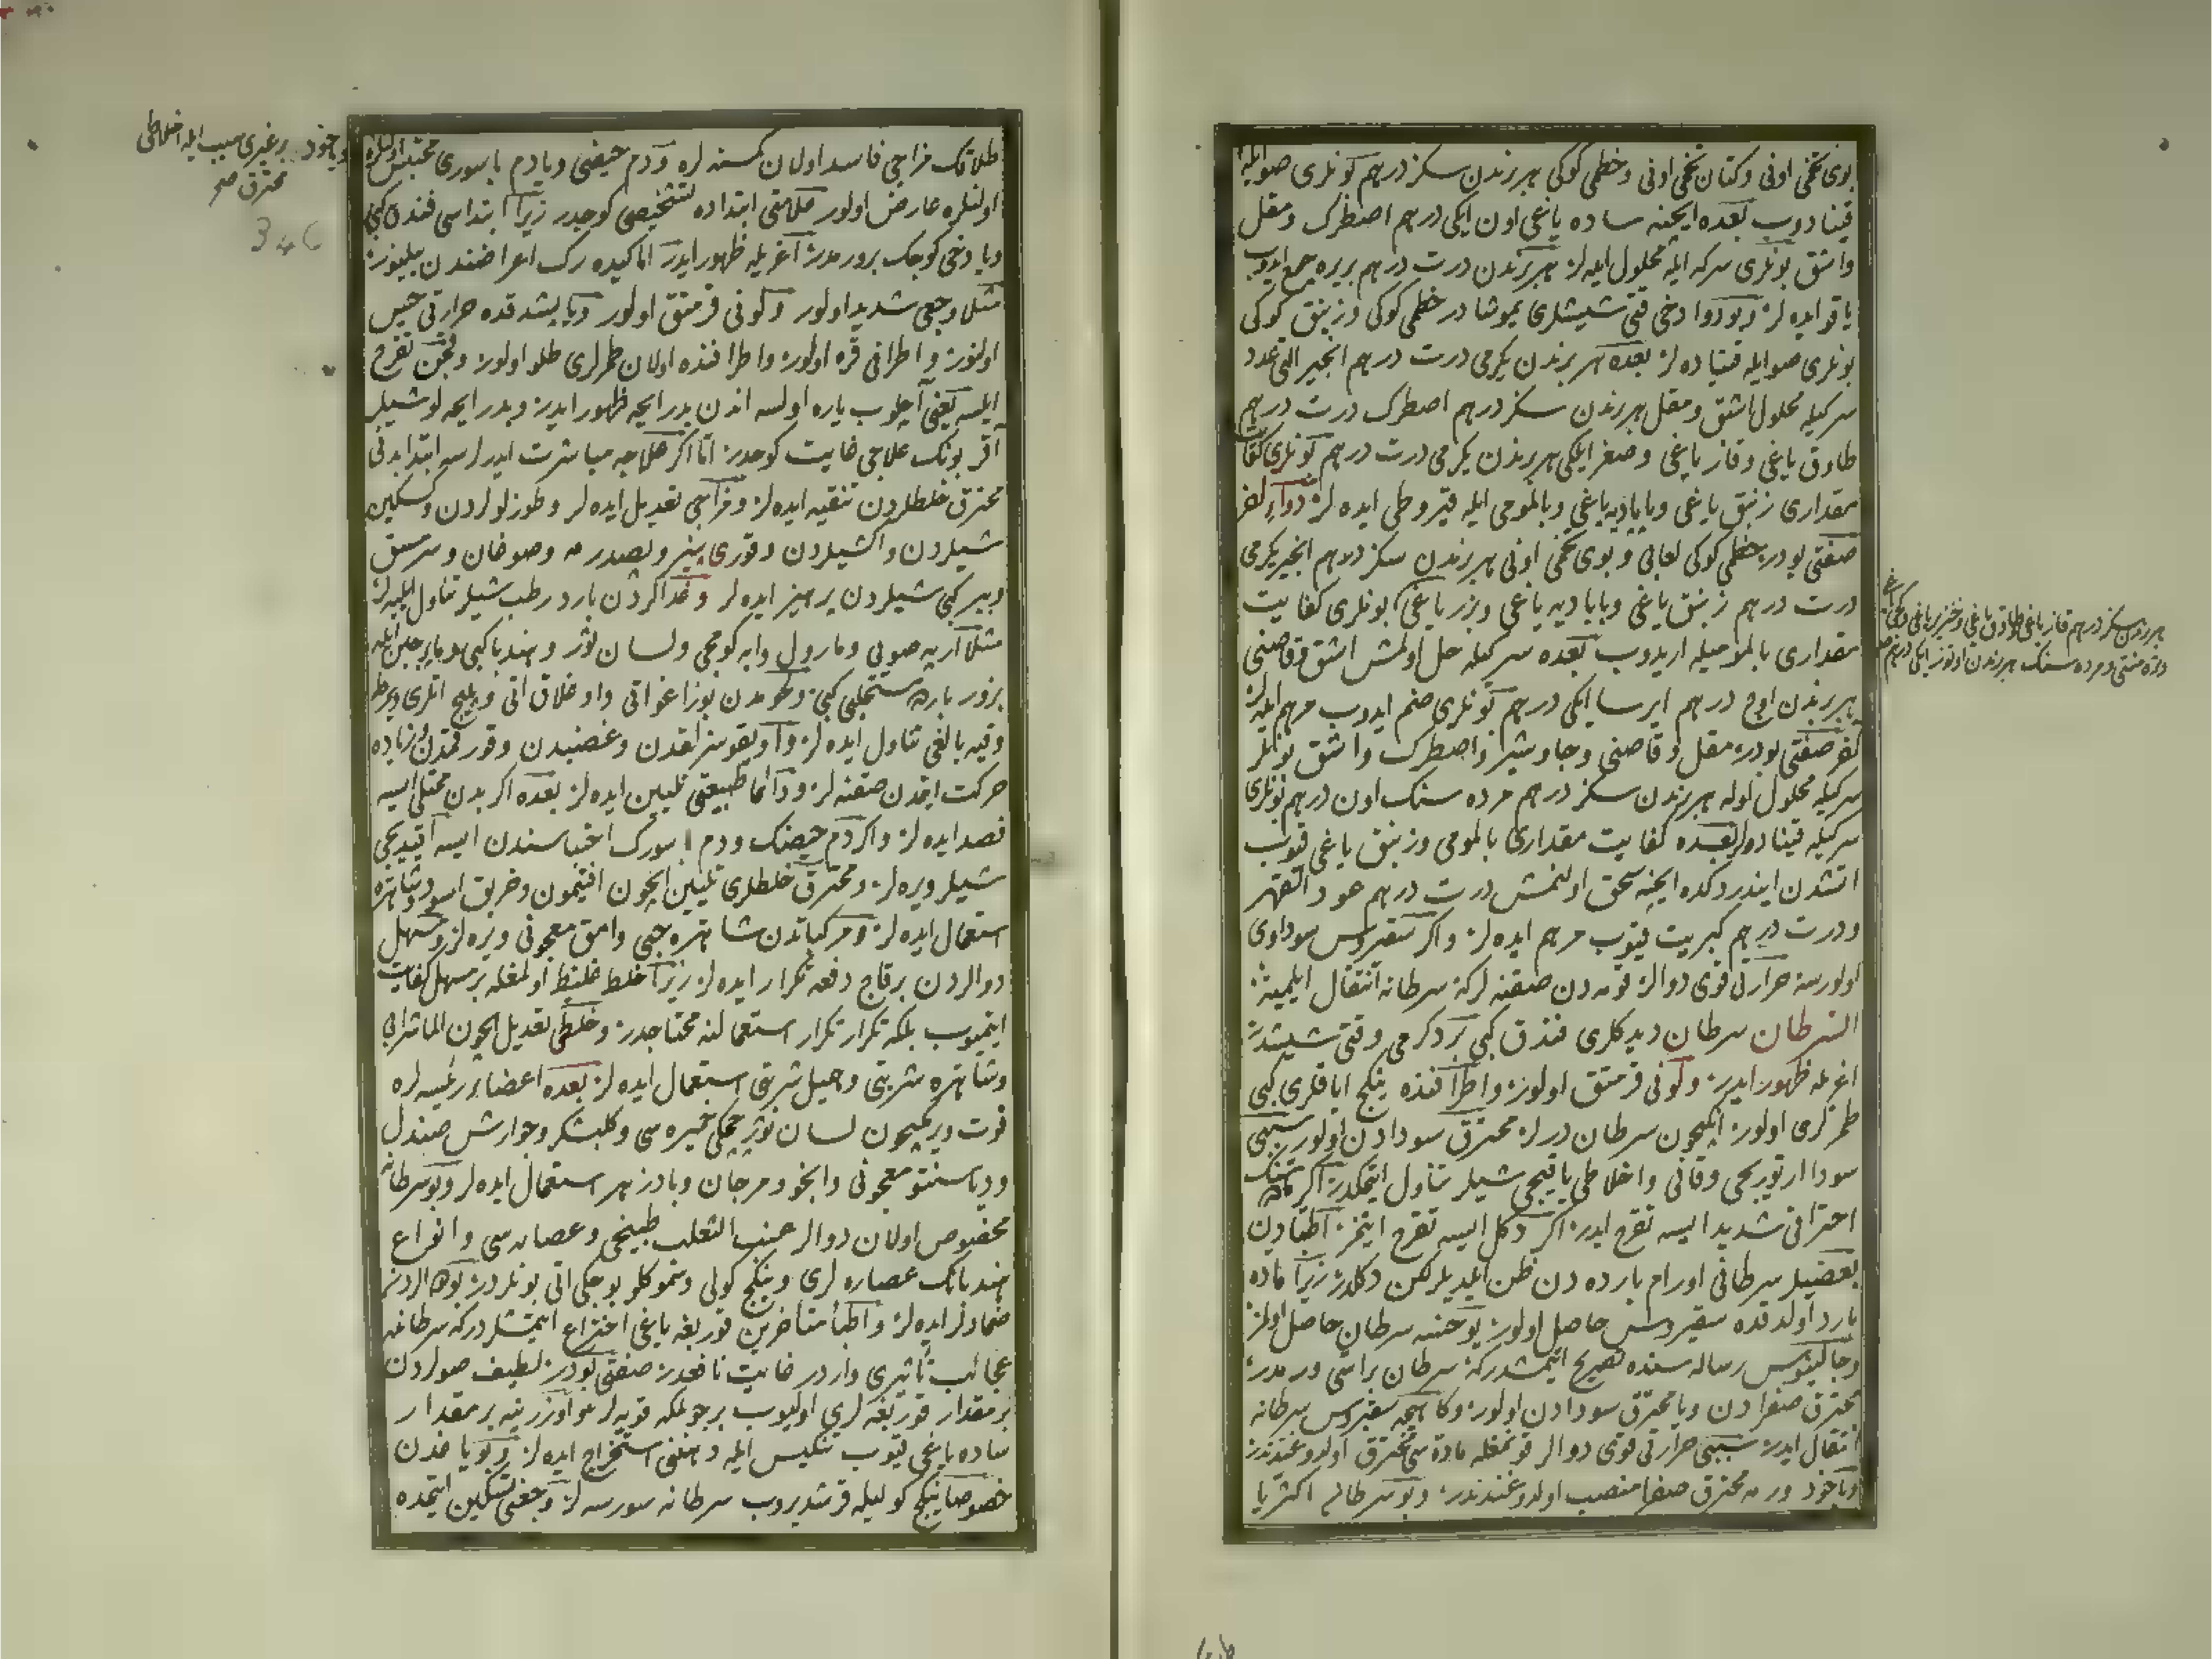 بوی تخمی اونی وکتان تخمی اونی وخطمی کوکی هر برندن سکز درهم بونلری صو ایله
قینادوب بعده ایچنه ساده یاغی اون ایکی درهم اصطرک ومقل
واشق بونلری سرکه ایله محلول ایله لر هر برندن درت درهم بریره جمع ایدوب
یاقو ایده لر وبو دوا دخی قتی شیشلری یموشادر خطمی کوکی وزنبق کوکی
بونلری صو ایله قیناده لر بعده هر برندن یکرمی درت درهم انجیر التی عدد
سرکیله محلول اشق ومقل هر برندن سکز درهم اصطرک درت درهم
طاوق یاغی وقاز یاغی وصغر ایلکی هر برندن یکرمی درت درهم بونلری کفایت
مقداری زنبق یاغی وبابادیه یاغی وبالمومی ایله قیروطی ایده لر دواء آخر
صفتی بودر خطمی کوکی لعابی وبوی تخمی اونی هر برندن سکز درهم انجیر یکرمی
درت درهم زنبق یاغی وبابادیه یاغی وبزر یاغی بونلری کفایت
مقداری بالمومیله اریدوب بعده سرکیله حل اولمش اشق وقاصنی
هر برندن اوچ درهم ایرسا ایکی درهم بونلری ضم ایدوب مرهم ایله لر
آخر صفتی بودر مقل وقاصنی وجاوشیر واصطرک واشق بونلر
سرکیله محلول اوله هر برندن سکز درهم مرده سنک اون درهم بونلری
سرکیله قینادوب بعده کفایت مقداری بالمومی وزنبق یاغی قیوب
اتشدن ایندردکده ایچنه سحق اولنمش درت درهم عود القهر
ودرت درهم کبریت قیوب مرهم ایده لر واکر سقیروس سوداوی
اولورسه حرارتی قوی دوالر قومدن صقنه لر که سرطانه انتقال ایلمیه
السرطان سرطان دیدکلری فندق کبی بر دکرمی وقتی شیشدر
اغریله ظهور ایدر وکونی قرمتق اولور واطرافنده ینکج ایاقلری کبی
طمرلری اولور انکیچون سرطان دیرلر محترق سودادن اولور سببی
سودا ارتوریجی وقانی واخلاطی یاقیجی شیلر تناول ایتمکدر اکر ماده نک
احتراقی شدید ایسه تقرح ایدر اکر دکل ایسه تقرح ایتمز اطبادن
بعضیلر سرطانی اورام بارده دن ظن ایلدیلر لکن دکلدر زیرا ماده
بارد اولدقده سقیروس حاصل اولور یوخسه سرطان حاصل اولمز
وجالینوس رساله سنده تصریح ایتمشدر که سرطان براسی ورمدر
محترق صفرادن ویا محترق سودادن اولور وکاهیجه سقیروس سرطانه
انتقال ایدر سببی حرارتی قوی دوالر قونمغله ماده سی محترق اولدوغندندر
ویاخود ورمه محترق صفرا منصب اولدوغندندر وبو سرطان اکثریا
هر برندن سکز درهم قاز یاغی وطاوق یاغی وخنزیر یاغی
ومرده سنک هر برندن اوتوز ایکی درهم صح
طلاقک مزاجی فاسد اولان کسنه لره ودم حیضی ویا دم باسوری محتبس
اولنلره عارض اولور علامتی ابتداده تشخیصی کوجدر زیرا ابتداسی فندق کبی
ویا دخی کوجک بر ورمدر اغریله ظهور ایدر اما کیده رک اعراضندن بیلنور
مثلا وجعی شدید اولور وکونی قرمتق اولور ویاپیشدقده حرارتی حس
اولنور واطرافی قره اولور واطرافنده اولان طمرلری طلو اولور وقچن تقرح
ایلسه یعنی آچلوب یاره اولسه اندن بدرایحه ظهور ایدر وبدرایحه لو شیلر
آقر بونک علاجی غایت کوجدر اما اکر علاجه مباشرت ایدرلرسه ابتدا بدنی
محترق خلطلردن تنقیه ایده لر ومزاجی تعدیل ایده لر وطوزلولردن وکسکین
شیلردن واکشیلردن وقوری پنیر وبصدرمه وصوغان وسرمسق
وبیبر کبی شیلردن پرهیز ایده لر وغداکردن بارد رطب شیلر تناول ایلیه لر
مثلا آرپه صویی ومارول وابه کومجی ولسان ثور وهندبا کبی
بزور بارده مستحلبی کبی ولحومدن بوزاغو اتی واوغلاق اتی وپلیج اتلری
وقیه بالغی تناول ایده لر واویقوسزلقدن وغضبدن وقورقمقدن وزیاده
حرکت ایتمدن صقنه لر ودائما طبیعتی تلیین ایده لر بعده اکر بدن ممتلی ایسه
فصد ایده لر واکر دم حیضک ودم باسورک احتباسندن ایسه آقیدیجی
شیلر ویره لر ومحترق خلطلری تلیین ایچون افتیمون وخربق اسود وشاهتره
استعمال ایده لر ومرکباتدن شاهتره حبی وامق معجونی ویره لر ومسهل
دوالردن بر قاچ دفعه تکرار ایده لر زیرا خلط غلیظ اولمغله بر مسهل کفایت
ایتمیوب بلکه تکرار تکرار استعمالنه محتاجدر وخلطی تعدیل ایچون الما شرابی
وشاهتره شربتی وجمیل شربتی استعمال ایده لر بعده اعضاء رئیسه لره
قوت ویرمکیچون لسان ثور چچکی خمیره سی وکلبشکر وجوارش صندل
ودیاسنتو معجونی وانجو ومرجان وبادزهر استعمال ایده لر وبو سرطانه
مخصوص اولان دوالر عنب الثعلب طبیخی وعصاره سی وانواع
هندبانک عصاره لری وینکج کولی وسموکلو بوجکی اتی بونلردر بو دوالردن
ضمادلر ایده لر واطبا متاخرین قوربغه یاغی اختراع ایتمشلردر که سرطانه
عجائب تاثیری واردر غایت نافعدر صنعتی بودر لطیف صولردن
بر مقدار قوربغه لری اولیوب بر جوملکه قویه لر واوزرینه بر مقدار
ساده یاغی قیوب تنکیس ایله دهنی استخراج ایده لر وبو یاغدن
خصوصا ینکج کولیله قرشدیروب سرطانه سورسه لر وجعنی تسکین ایتمده
ویاخود بر غیری سبب ایله اخلاطی
محترق صح
346